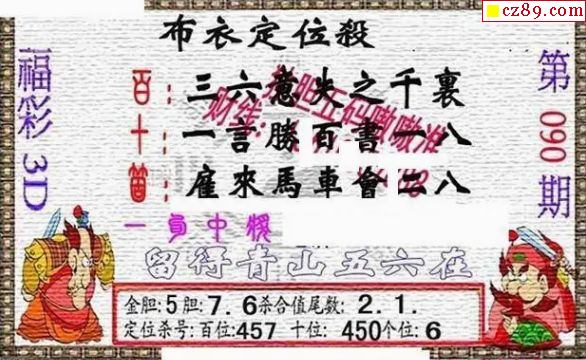 cz89.com
布衣定位殺
福彩3D
第090期
百：三六意失之千裏
十：一言勝百書一八
雇來馬車會二八
留得青山五六在
金胆:5胆:7.6杀合值尾数:2.1.
定位杀号:百位:457 十位:450个位:6